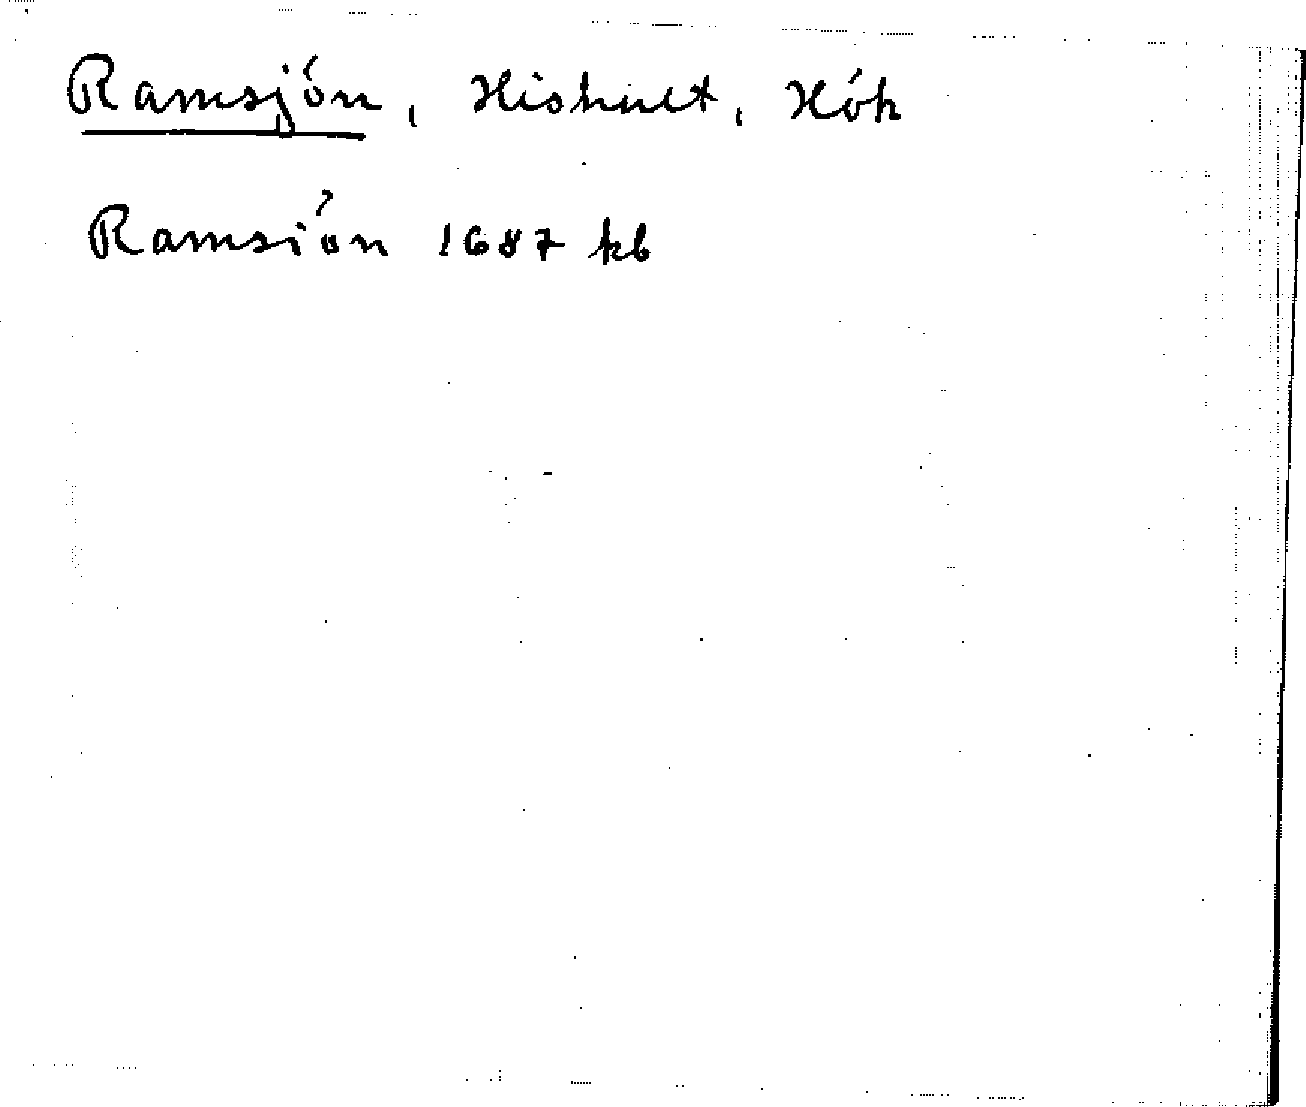 Ramsjön, Hishult, Höh
Ramsiön 1687 kb